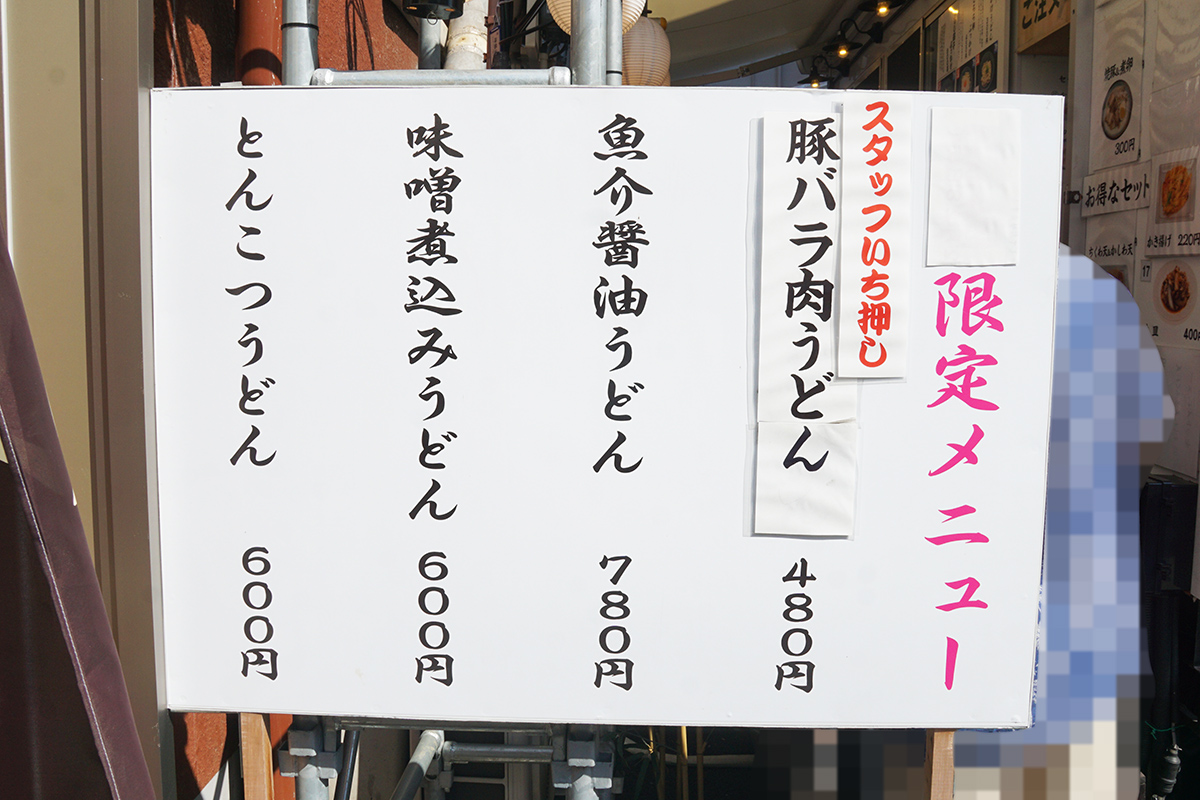 限定メニュー
スタッフいち押し
豚バラ肉うどん 480円
魚介醤油うどん 780円
味噌煮込みうどん 600円
とんこつうどん 600円
300円
お得なセット
かき揚げ 220円
ちくわ天&かしわ天
17
400